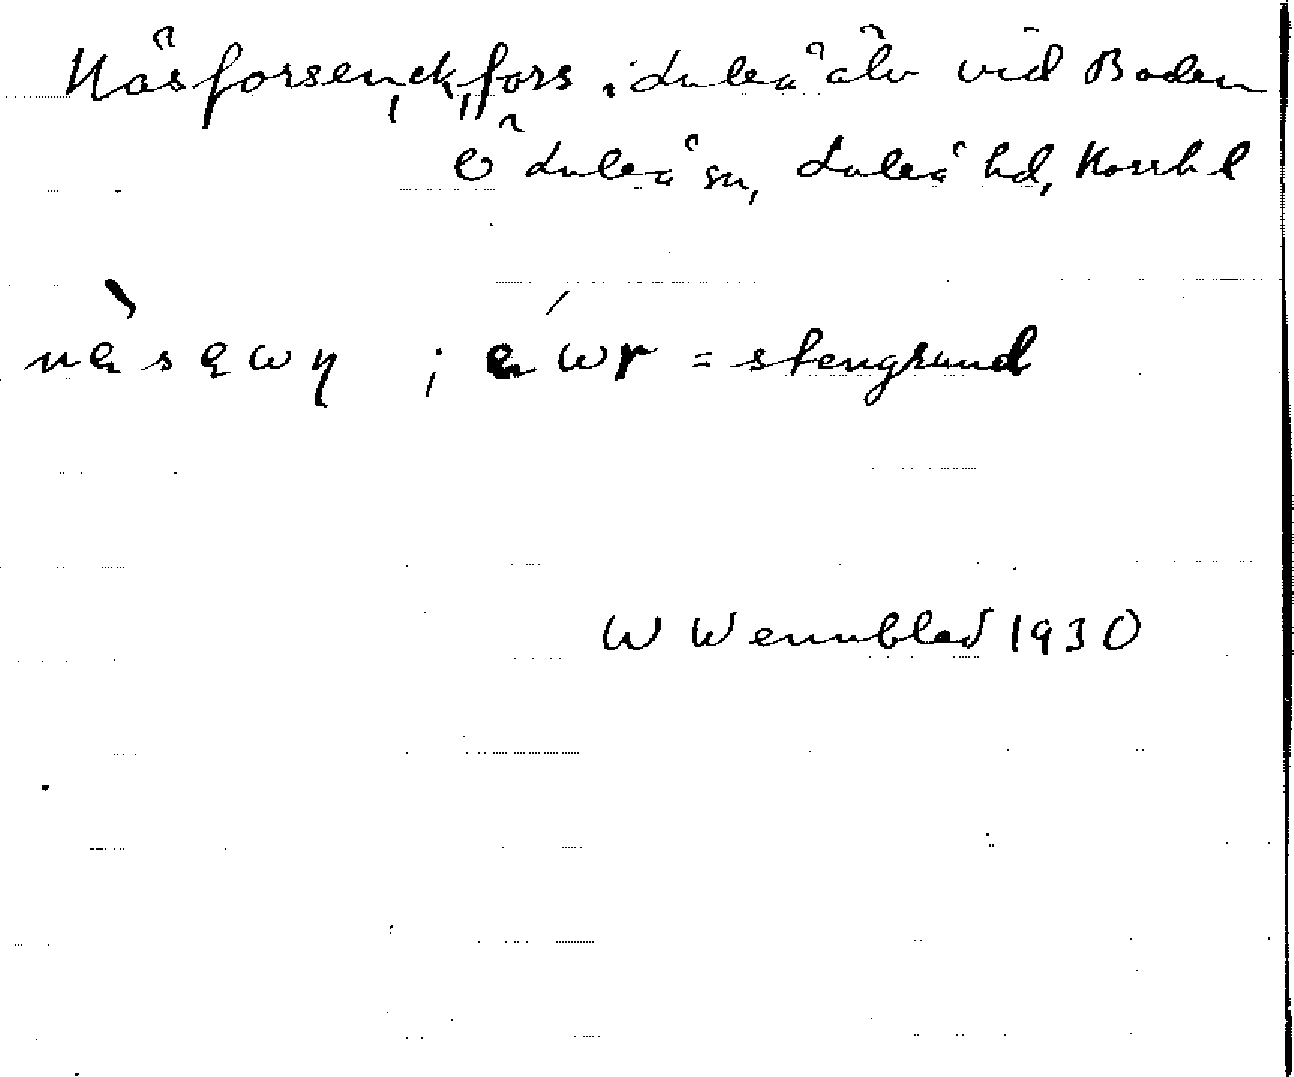 Näsforsen, ck, fors i Luleå älv vid Boden
Ö Luleå sn, Luleå hd, Norrb l
; = stengrund
W Wennblad 1930